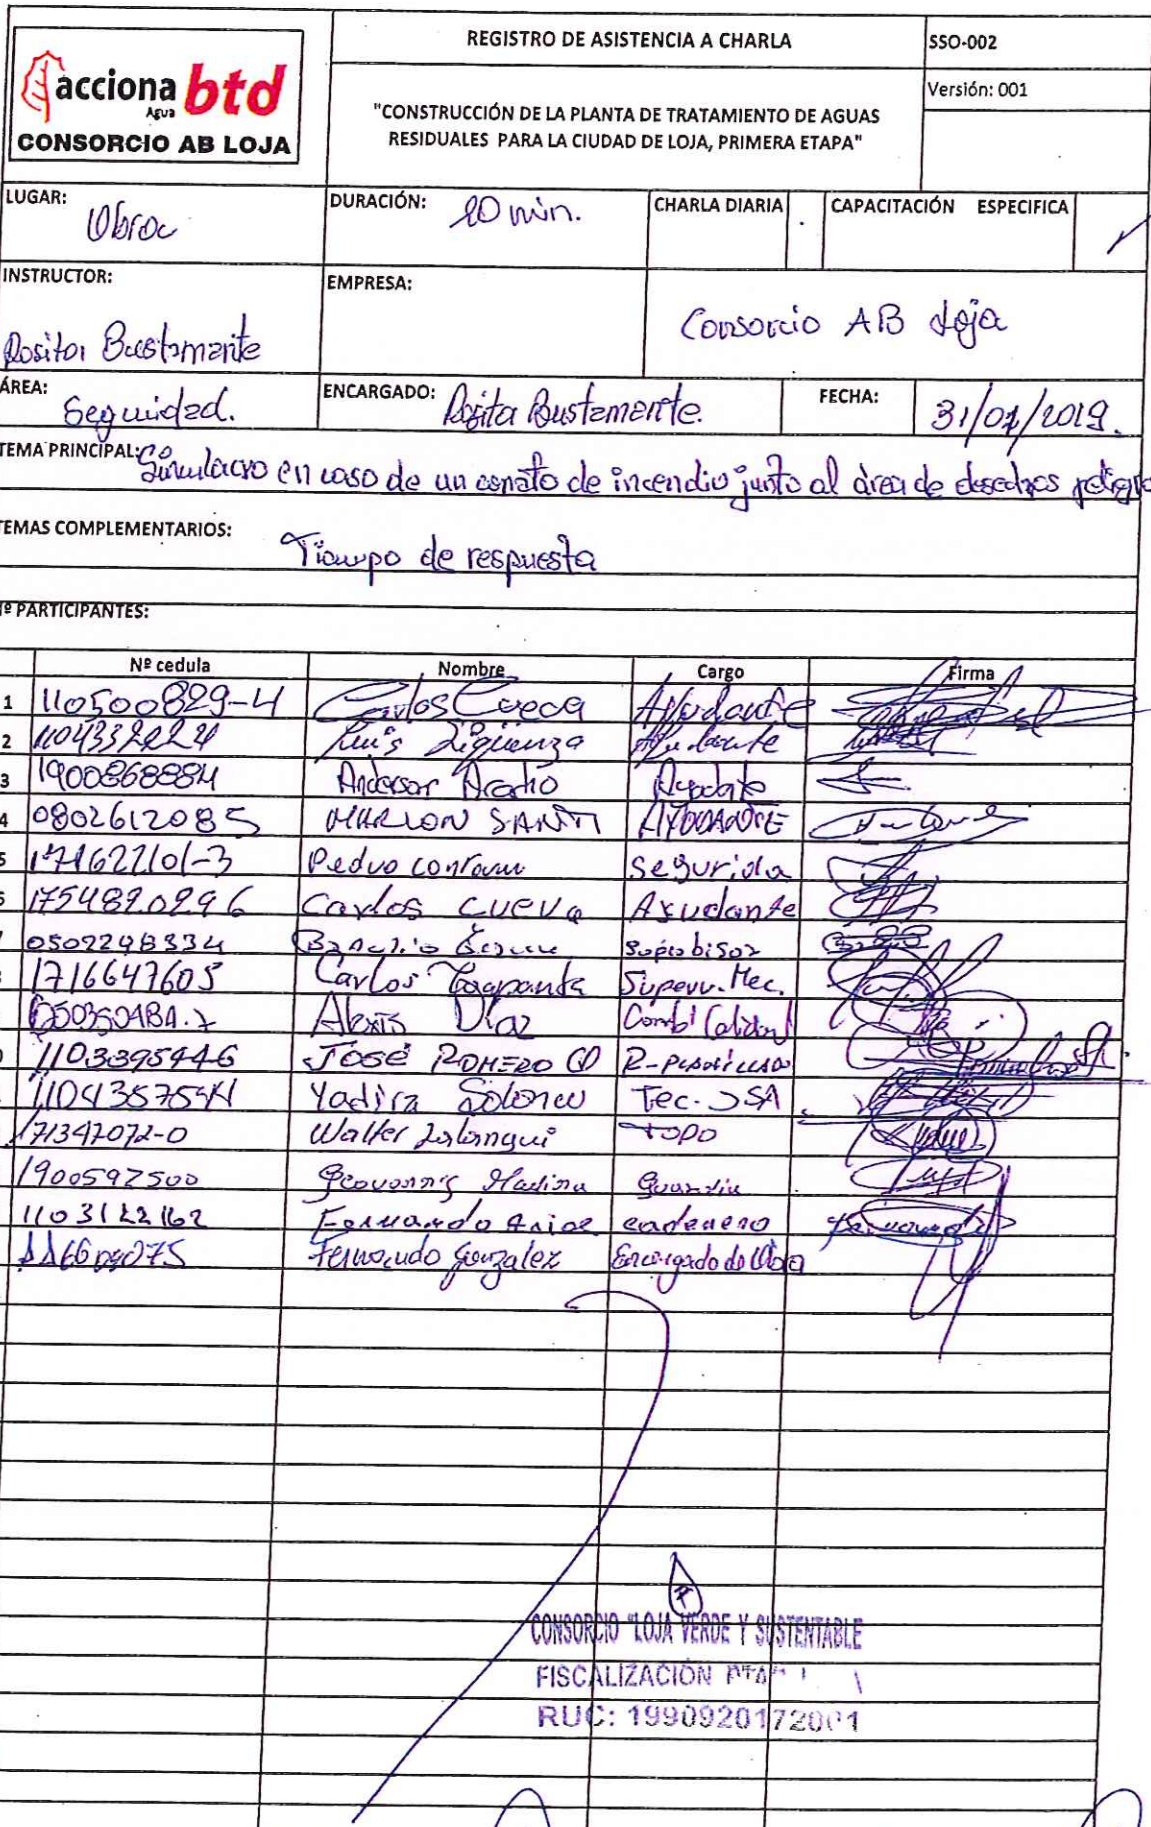 REGISTRO DE ASISTENCIA A CHARLA
SSO-002
acciona btd
Agua
CONSORCIO AB LOJA
Versión: 001
"CONSTRUCCIÓN DE LA PLANTA DE TRATAMIENTO DE AGUAS
RESIDUALES PARA LA CIUDAD DE LOJA, PRIMERA ETAPA"
LUGAR: Obra DURACIÓN: 20 min. CHARLA DIARIA CAPACITACIÓN ESPECIFICA ✓
INSTRUCTOR: Rosita Bustamante EMPRESA: Consorcio AB Loja
ÁREA: Seguridad. ENCARGADO: Rosita Bustamante. FECHA: 31/07/2019.
TEMA PRINCIPAL: Simulacro en caso de un conato de incendio junto al área de desechos
TEMAS COMPLEMENTARIOS: Tiempo de respuesta
Nº PARTICIPANTES:
Nº cedula Nombre Cargo Firma
1 110500829-4 Carlos Cueca Ayudante
2 Luis Sigüenza Ayudante
3 1900868884 Anderson Ayudante
4 0802612085 MARLON SANTI AYUDANTE
5 171622101-3 Pedro segurida
1754820296 Carlos Cueva Axudante
0502248334 Supiobisor
1716647605 Carlos Supervi. Mec.
Alexis Díaz
1103395446 JOSÉ ROMERO
Yadira Tec. SSA
171347072-0 Walter TOPO
1900597500 Guardia
1103122162 Fernando Arias cadenero
Fernando Gonzalez Encargado de Obra
CONSORCIO "LOJA VERDE Y SUSTENTABLE
FISCALIZACIÓN
RUC: 1990920172001